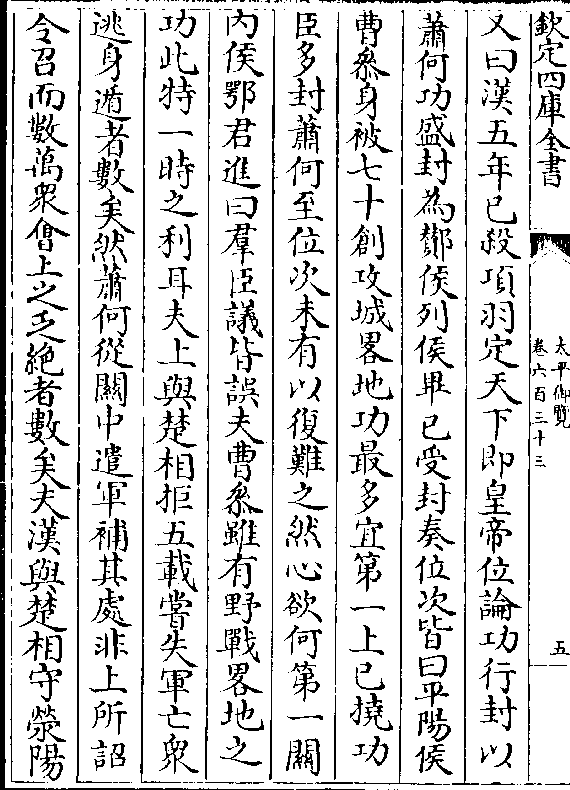 欽定四庫全書
太平御覽
卷六百三十三
五
又曰漢五年已殺項羽定天下即皇帝位論功行封以
蕭何功盛封為酇侯列侯畢已受封奏位次皆曰平陽侯
曹叅身被七十創攻城畧地功最多宜第一上已撓功
臣多封蕭何至位次未有以復難之然心欲何第一關
内侯鄂君進曰羣臣議皆誤夫曹叅雖有野戰畧地之
功此特一時之利耳夫上與楚相拒五載嘗失軍亡衆
逃身遁者數矣然蕭何從關中遣軍補其處非上所詔
令召而數萬衆會上之乏絶者數矣夫漢與楚相守滎陽